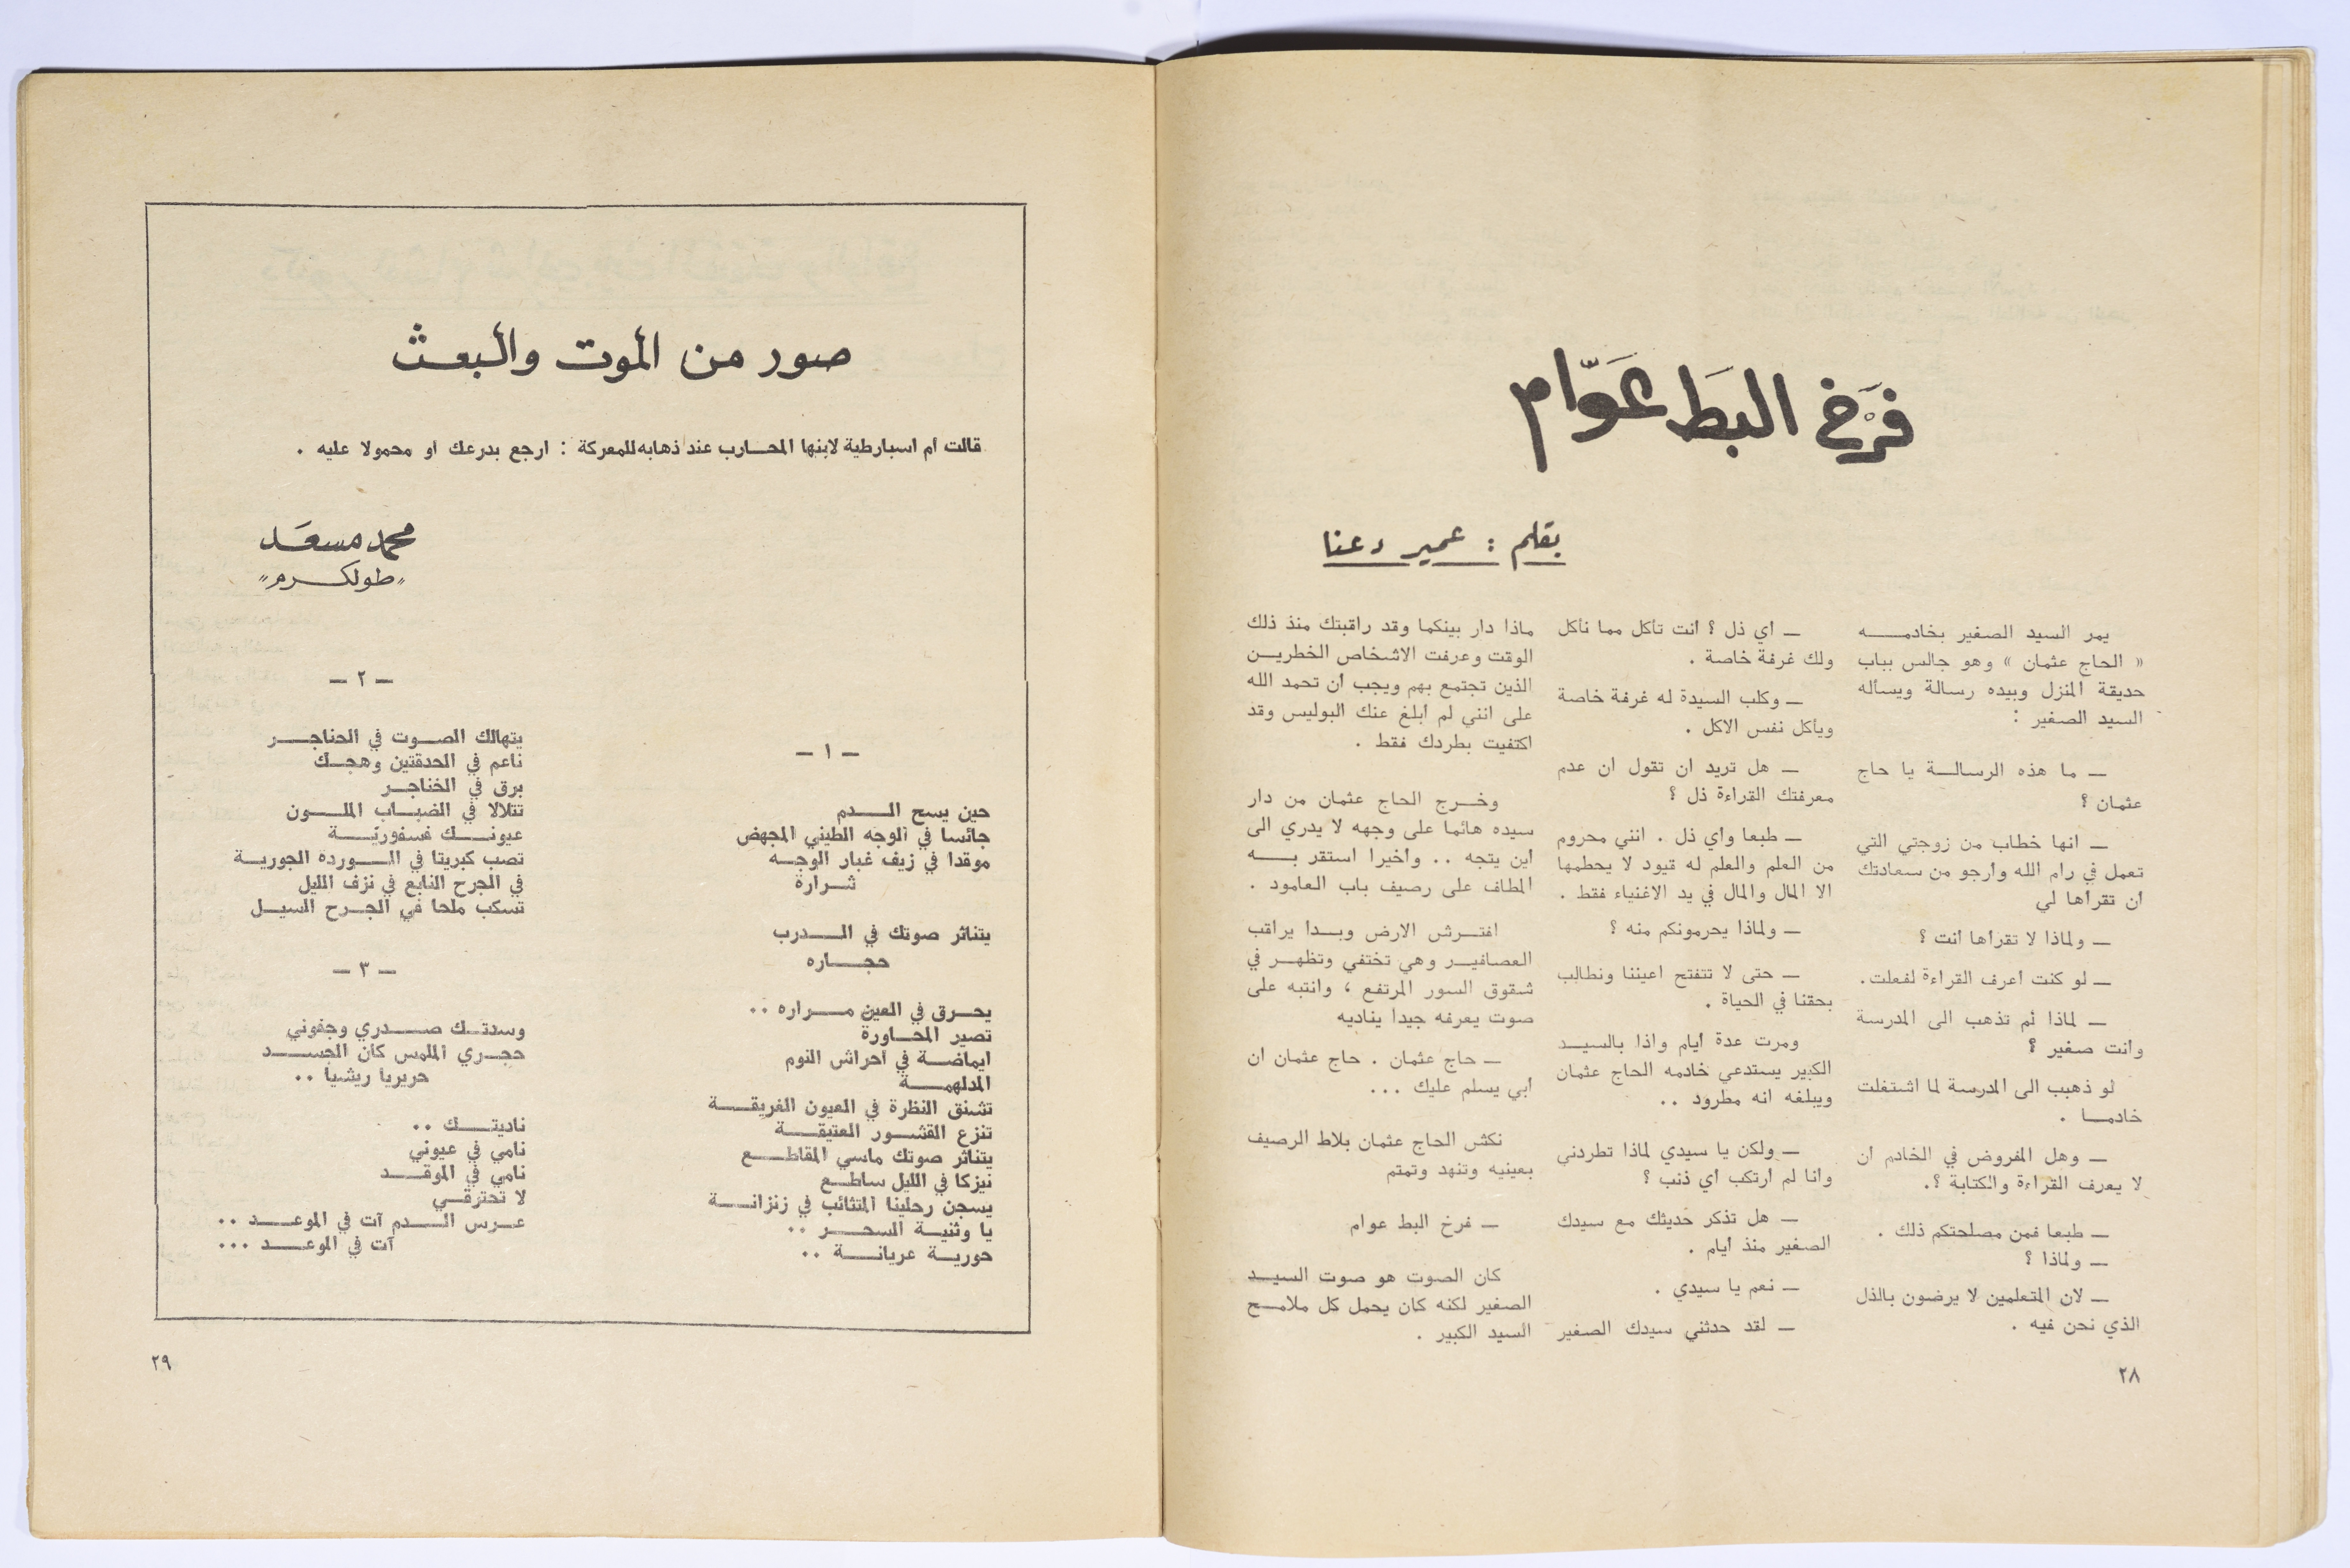 فَرْخ البَط عَوّام
بقلم : عمير دعنا
يمر السيد الصغير بخادمه
« الحاج عثمان » وهو جالس بباب
حديقة المنزل وبيده رسالة ويسأله
السيد الصغير :
— ما هذه الرسالة يا حاج
عثمان ؟
— انها خطاب من زوجتي التي
تعمل في رام الله وأرجو من سعادتك
أن تقرأها لي
— ولماذا لا تقرأها أنت ؟
— لو كنت أعرف القراءة لفعلت.
— لماذا لم تذهب الى المدرسة
وأنت صغير ؟
لو ذهبت الى المدرسة لما اشتغلت
خادما .
— وهل المفروض في الخادم أن
لا يعرف القراءة والكتابة ؟.
— طبعا فمن مصلحتكم ذلك .
— ولماذا ؟
— لان المتعلمين لا يرضون بالذل
الذي نحن فيه .
— أي ذل ؟ أنت تأكل مما نأكل
ولك غرفة خاصة .
— وكلب السيدة له غرفة خاصة
ويأكل نفس الاكل .
— هل تريد ان تقول ان عدم
معرفتك القراءة ذل ؟
— طبعا وأي ذل . انني محروم
من العلم والعلم له قيود لا يحطمها
الا المال والمال في يد الاغنياء فقط .
— ولماذا يحرمونكم منه ؟
— حتى لا تتفتح أعيننا ونطالب
بحقنا في الحياة .
ومرت عدة أيام واذا بالسيد
الكبير يستدعي خادمه الحاج عثمان
ويبلغه انه مطرود ..
— ولكن يا سيدي لماذا تطردني
وأنا لم أرتكب أي ذنب ؟
— هل تذكر حديثك مع سيدك
الصغير منذ أيام .
— نعم يا سيدي .
— لقد حدثني سيدك الصغير
ماذا دار بينكما وقد راقبتك منذ ذلك
الوقت وعرفت الاشخاص الخطرين
الذين تجتمع بهم ويجب أن تحمد الله
على انني لم أبلغ عنك البوليس وقد
اكتفيت بطردك فقط .
وخرج الحاج عثمان من دار
سيده هائما على وجهه لا يدري الى
أين يتجه .. وأخيرا استقر به
المطاف على رصيف باب العامود .
افترش الارض وبدا يراقب
العصافير وهي تختفي وتظهر في
شقوق السور المرتفع ، وانتبه على
صوت يعرفه جيدا يناديه
— حاج عثمان . حاج عثمان ان
أبي يسلم عليك ...
نكش الحاج عثمان بلاط الرصيف
بعينيه وتنهد وتمتم
— فرخ البط عوام
كان الصوت هو صوت السيد
الصغير لكنه كان يحمل كل ملامح
السيد الكبير .
٢٨
صور من الموت والبعث
قالت أم اسبارطية لابنها المحارب عند ذهابه للمعركة : ارجع بدرعك أو محمولا عليه .
محمد مسعَد
"طولكرم"
— ١ —
حين يسح الدم
جائسا في الوجه الطيني المجهض
موقدا في زيف غبار الوجه
شرارة
يتناثر صوتك في الدرب
حجاره
يحرق في العين مراره ..
تصير المحاورة
ايماضة في أحراش النوم
المدلهمة
تشنق النظرة في العيون الغريقة
تنزع القشور العتيقة
يتناثر صوتك ماسي المقاطع
نيزكا في الليل ساطع
يسجن رحلينا المتثائب في زنزانة
يا وثنية السحر ..
حورية عريانة ..
— ٢ —
يتهالك الصوت في الحناجر
ناعم في الحدقتين وهجك
برق في الخناجر
تتلالا في الضباب الملون
عيونك فسفورية
تصب كبريتا في الورده الجورية
في الجرح النابع في نزف الليل
تسكب ملحا في الجرح السيل
— ٣ —
وسدتك صدري وجفوني
حجري الملمس كان الجسد
حريريا ريشيا ..
ناديتك ..
نامي في عيوني
نامي في الموقد
لا تحترقي
عرس الدم آت في الموعد ..
آت في الموعد ...
٢٩